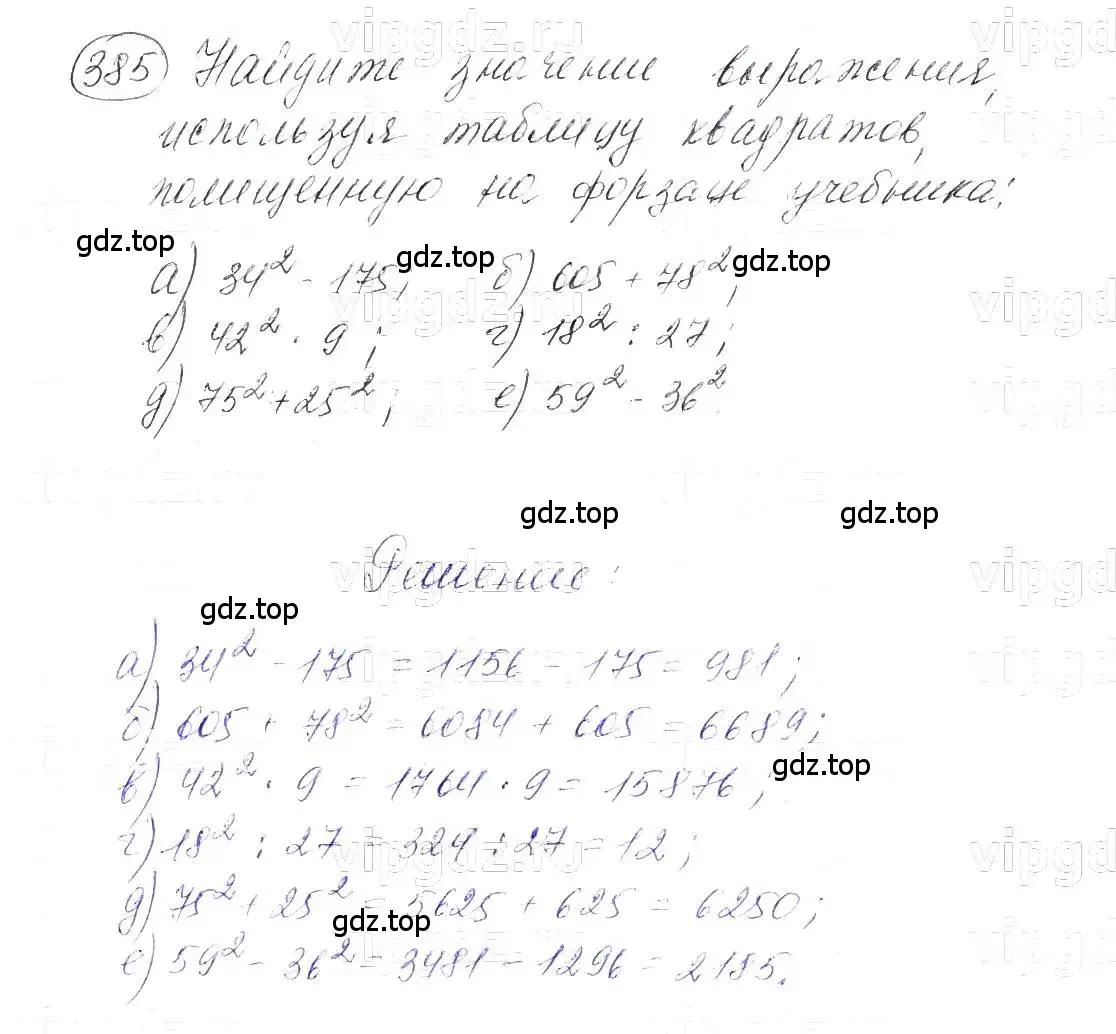 385 Найдите значение выражения,
используя таблицу квадратов,
помещенную на форзаце учебника:
gdz.top gdz.top gdz.top
а) 34² - 175; б) 605 + 78²;
в) 42² · 9; г) 18² : 27;
д) 75² + 25²; е) 59² - 36²
gdz.top gdz.top
Решение:
gdz.top
а) 34² - 175 = 1156 - 175 = 981;
б) 605 + 78² = 6084 + 605 = 6689;
gdz.top
в) 42² · 9 = 1764 · 9 = 15876;
г) 18² : 27 = 324 : 27 = 12;
д) 75² + 25² = 5625 + 625 = 6250;
gdz.top
е) 59² - 36² = 3481 - 1296 = 2185.